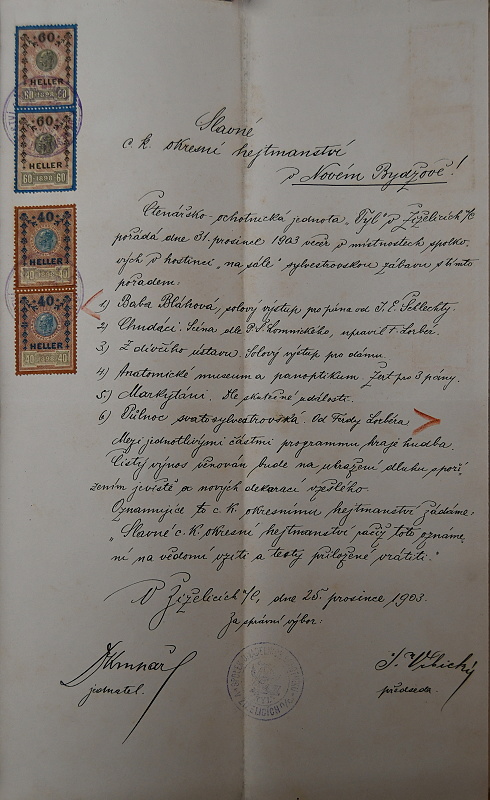 60
HELLER
60 1898 60
60
HELLER
60 1898 60
40
HELLER
40 1898 40
40
HELLER
40 1898 40
Slavné
c. k. okresní hejtmanství
v Novém Bydžově!
Čtenářsko-ochotnická jednota „Tyl“ v Žiželicích n/C
pořádá dne 31. prosince 1903 večer v místnostech spolko-
vých v hostinci „na sále“ sylvestrovskou zábavu s tímto
pořadem:
1) Baba Bláhová, solový výstup pro pána od J. E. Šlechty.
2) Chuďaci. Scéna dle P. S. Lomnického, upravil F. Lorber.
3) Z dívčího ústavu. Solový výstup pro dámu.
4) Anatomické museum a panoptikum Žert pro 3 pány.
5) Markytáni. Dle skutečné události.
6) Půlnoc svatosylvestrovská. Od Ferdy Lorbéra
Mezi jednotlivými částmi programmu hraje hudba.
Čistý výnos věnován bude na uhražení dluhu spoří-
zením jeviště a nových dekorací vzešlého.
Oznamujíce to c. k. okresnímu hejtmanství žádáme:
„Slavné c. k. okresní hejtmanství račiž toto oznáme-
ní na vědomí vzíti a texty přiložené vrátiti.“
V Žiželicích n/C, dne 25. prosince 1903.
Za správní výbor:
jednatel.
předseda.